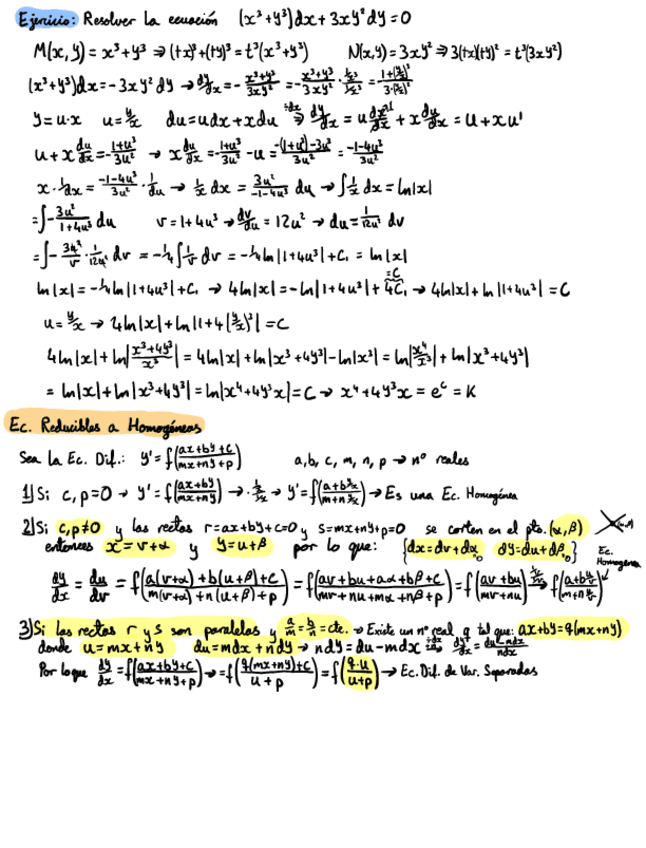 Ejercicio: Resolver la ecuación (x³+y³)dx+3xy²dy=0
M(x,y)=x³+y³ ⇒ (tx)³+(ty)³=t³(x³+y³) N(x,y)=3xy² ⇒ 3(tx)(ty)²=t³(3xy²)
(x³+y³)dx=-3xy²dy → dy/dx=-(x³+y³)/(3xy²)=-(x³+y³)/(3xy²)·(1/x³)/(1/x³)=-(1+(y/x)³)/(3·(y/x)²)
y=u·x u=y/x du=udx+xdu ÷dx⇒ dy/dx=u dx/dx+x du/dx=u+xu'
u+x du/dx=-(1+u³)/(3u²) → x du/dx=-(1+u³)/(3u²)-u=(-(1+u³)-3u³)/(3u²)=(-1-4u³)/(3u²)
x·1/dx=(-1-4u³)/(3u²)·1/du → 1/x dx=3u²/(-1-4u³) du → ∫1/x dx=ln|x|
=∫-3u²/(1+4u³) du v=1+4u³ → dv/du=12u² → du=1/(12u²) dv
=∫-3u²/v·1/(12u²) dv=-¼∫1/v dv=-¼ln|1+4u³|+C₁=ln|x|
ln|x|=-¼ln|1+4u³|+C₁ → 4ln|x|=-ln|1+4u³|+4C₁ =C → 4ln|x|+ln|1+4u³|=C
u=y/x → 4ln|x|+ln|1+4(y/x)³|=C
4ln|x|+ln|(x³+4y³)/x³|=4ln|x|+ln|x³+4y³|-ln|x³|=ln|x⁴/x³|+ln|x³+4y³|
=ln|x|+ln|x³+4y³|=ln|x⁴+4y³x|=C → x⁴+4y³x=eᶜ=K
Ec. Reducibles a Homogéneas
Sea la Ec. Dif.: y'=f((ax+by+c)/(mx+ny+p)) a,b,c,m,n,p → nº reales
1) Si c,p=0 → y'=f((ax+by)/(mx+ny)) → ·(1/x)/(1/x) → y'=f((a+b y/x)/(m+n y/x)) → Es una Ec. Homogénea
2) Si c,p≠0 y las rectas r=ax+by+c=0 y s=mx+ny+p=0 se corten en el pto. (α,β)
entonces x=v+α y y=u+β por lo que: {dx=dv+dα 0 dy=du+dβ 0} Ec. Homogénea
dy/dx=du/dv=f((a(v+α)+b(u+β)+c)/(m(v+α)+n(u+β)+p))=f((av+bu+aα+bβ+c)/(mv+nu+mα+nβ+p))=f((av+bu)/(mv+nu)) (1/v)/(1/v)→ f((a+b u/v)/(m+n u/v))
3) Si las rectas r y s son paralelas y a/m=b/n=cte. → Existe un nº real q tal que: ax+by=q(mx+ny)
donde u=mx+ny du=mdx+ndy → ndy=du-mdx ÷dx→ dy/dx=(du-mdx)/(ndx)
Por lo que dy/dx=f((ax+by+c)/(mx+ny+p)) → =f((q(mx+ny)+c)/(u+p))=f((q·u)/(u+p)) → Ec. Dif. de Var. Separadas